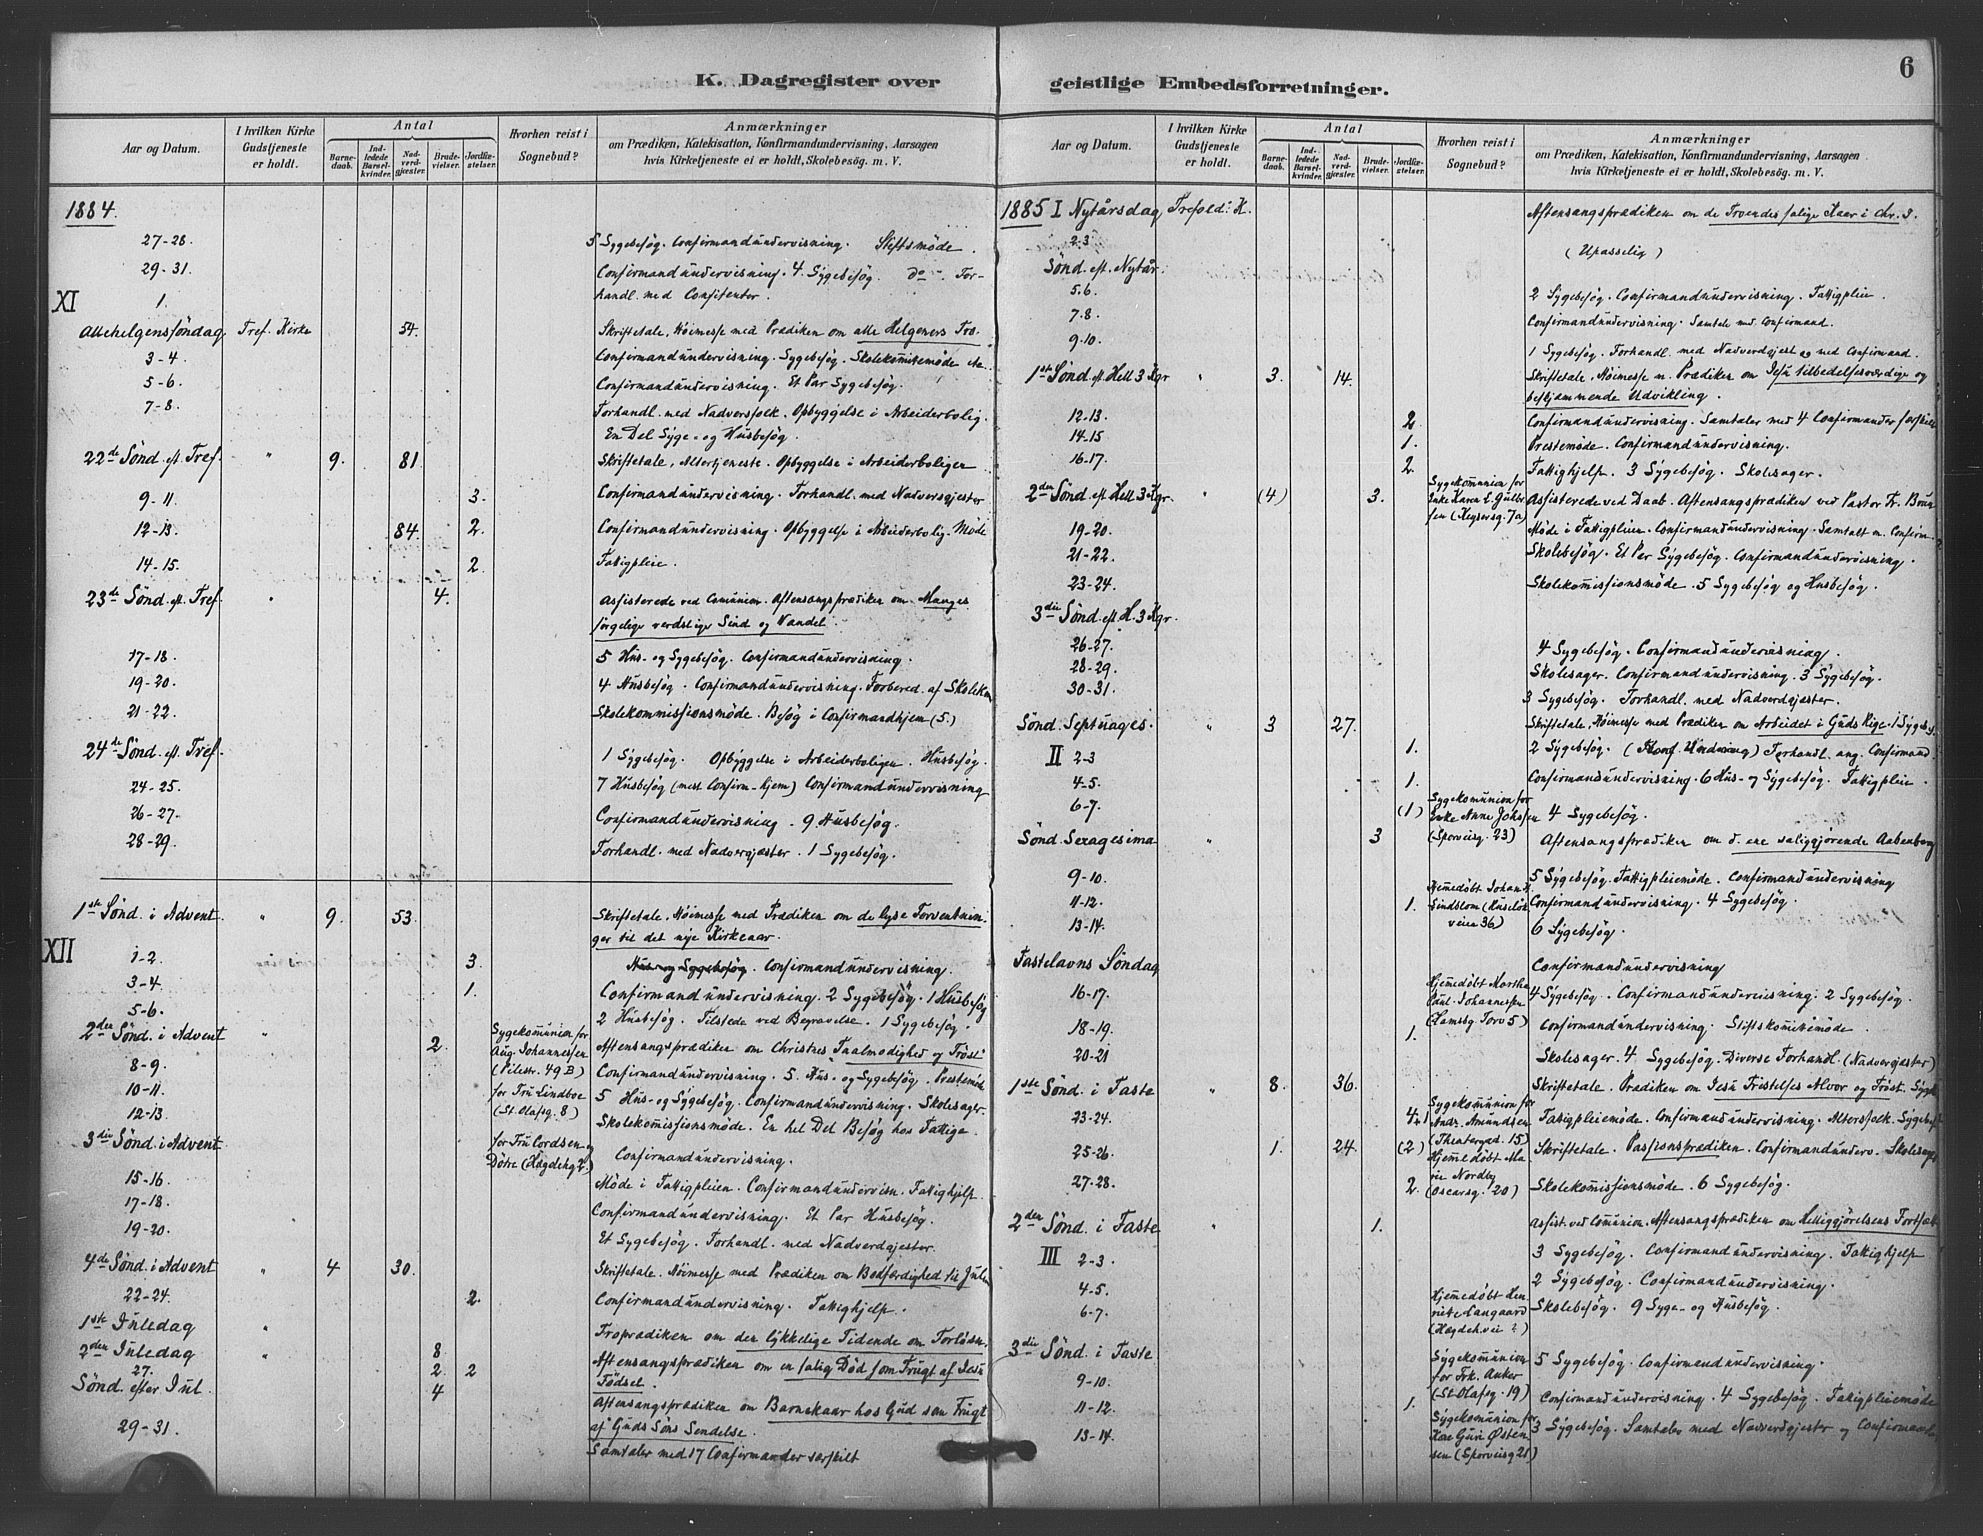 K. Dagregister over
Aar og Datum.
I hvilken Kirke Gudstjeneste er holdt.
Antal
Barnedaab.
Indledede Barselkvinder.
Nadverdgjæster.
Brudevielser.
Jordfæstelser.
Hvorhen reist i Sognebud?
Anmærkninger
om Prædiken, Katekisation, Konfirmandundervisning, Aarsagen
hvis Kirketjeneste ei er holdt, Skolebesög. m. V.
1884.
27-28. 5 Sygebesög. Confirmandundervisning. Stiftsmöde.
29-31. Confirmandundervisning. 4 Sygebesög do. For-
XI 1. handl. med Consitenter.
Allehelgensföndag Tref. Kirke 54. Skriftetale, Höimesse med Prædiken om alle Helgeners Tro.
3-4. Confirmandundervisning. Sygebesög. Skolekomitemöde
5-6. Confirmandundervisning. Et Par Sygebesög.
7-8. Forhandl. med Nadversfolk. Opbyggelse i Arbeiderbolig.
En Del Syge- og Husbesög.
22de Sönd. eft. Tref. " 9. 81. Skriftetale, Altertjeneste. Opbyggelse i Arbeiderboliger
9-11. 3. Confirmandundervisning. Forhandl. med Nadversgjester
12-13. 84. 2. Confirmandundervisning. Opbyggelse i Arbeiderbolig. Möde
14-15. 2. Fattigpleie.
23de Sönd. eft. Tref. " 4. Assisterede ved Comunion. Aftensangsprædiken om Manges
sörgelige verdslige Sind og Vandel.
17-18. 5 Hus- og Sygebesög. Confirmandundervisning.
19-20. 4 Husbesög. Confirmandundervisning. Forbered. af Skolekom
21-22. Skolekommissionsmöde. Besög i Confirmandhjem (5.)
24de Sönd. eft. Tref. 1 Sygebesög. Opbyggelse i Arbeiderboligen. Husbesög.
24-25. 7 Husbesög (mest Confirm-hjem) Confirmandundervisning
26-27. Confirmandundervisning. 9 Husbesög.
28-29. Forhandl. med Nadvergjæster. 1 Sygebesög.
1ste Sönd. i Advent. " 9. 53. Skriftetale, Höimesse med Prædiken om de lyse Forventnin-
ger til det nye Kirkeaar.
XII 1-2. 3. Hus- og Sygebesög. Confirmandundervisning.
3-4. 1. Confirmandundervisning. 2 Sygebesög. 1 Husbesög
5-6. 2 Husbesög. Tilstede ved Begravelse. 1 Sygebesög.
2den Sönd. i Advent " 2. Sygekommunion for Aug. Johannessen (Pilestr. 49 B) Aftensangsprædiken om Christnes Taalmodighed og Tröst
8-9. Confirmandundervisning. 5 Hus- og Sygebesög. Prestemöde
10-11. for Fru Lindboe (St. Olafsg. 8) 5 Hus- og Sygebesög. Confirmandundervisning. Skolesager.
12-13. Skolekommissionsmöde. En hel Del Besög hos Fattige.
3die Sönd. i Advent for Fru Cordsen og Dötre (Hægdehg 2.) Confirmandundervisning.
15-16. Möde i Fattigpleien. Confirmandundervisn. Fattighjelp.
17-18. Confirmandundervisning. Et Par Husbesög.
19-20. Et Sygebesög. Forhandl. med Nadverdgjester.
4de Sönd. i Advent " 4 30. Skriftetale. Höimesse med Prædiken om Bodfærdighed til Julen
22-24. 2. Confirmandundervisning. Fattighjelp.
1ste Juledag " Froprædiken om den lykkelige Tidende om Forlösn.
2den Juledag " 8. Aftensangsprædiken om en salig Död som Frugt af Jesu
27. 2. 2 Födsel.
Sönd. efter Jul. 4 Aftensangsprædiken om Barnekaar hos Gud som Frugt
29-31. af Guds Söns Sendelse.
Samtaler med 17 Confirmander særskilt
geistlige Embedsforretninger.
6
Aar og Datum.
I hvilken Kirke Gudstjeneste er holdt.
Antal
Barnedaab.
Indledede Barselkvinder.
Nadverdgjæster.
Brudevielser.
Jordfæstelser.
Hvorhen reist i Sognebud?
Anmærkninger
om Prædiken, Katekisation, Konfirmandundervisning, Aarsagen
hvis Kirketjeneste ei er holdt, Skolebesög. m. V.
1885 I Nytårsdag Trefold: K. Aftensangsprædiken om de Troendes salige Kaar i Chr. J.
2.3 (Upasselig)
Sönd. eft. Nytår.
5.6. 2 Sygebesög. Confirmandundervisning. Fattigpleie.
7.8. Confirmandundervisning. Samtale med Confirmand.
9-10. 1 Sygebesög. Forhandl. med Nadverdgjest og med Confirmand.
1ste Sönd eft Hell 3 Kgr " 3. 14. Skriftetale, Höimesse m. Prædiken om Jesu tilbedelsesværdige og
beskjæmmende Udvikling.
12-13. 2. Confirmandundervisning. Samtaler med 4 Confirmander særskilt
14-15 1. Prestemöde. Confirmandundervisning.
16-17. 2. Fattighjelp. 3 Sygebesög. Skolesager.
2den Sönd eft Hell 3 Kgr " (4) 3. Sygekommunion for Enke Karen E. Gulbrandsen (Keysersg. 7a) Assisterede ved Daab. Aftensangsprædiken ved Pastor Fr. Brun
19-20. Möde i Fattigpleien. Confirmandundervisning. Samtalt m. Confirm.
21-22. Skolebesög. Et Par Sygebesög. Confirmandundervisning.
23-24. Skolekommissionsmöde. 5 Sygebesög og Husbesög.
3die Sönd eft H. 3 Kgr.
26-27. 4 Sygebesög. Confirmandundervisning.
28-29. Skolesager. Confirmandundervisning. 3 Sygebesög.
30-31. 3 Sygebesög. Forhandl. med Nadverdgjester.
Sönd. Septuages. " 3 27. Skriftetale, Höimesse med Prædiken om Arbeidet i Guds Rige. 1 Sygebes.
II 2-3 1. 2 Sygebesög. Forhandl. ang. Confirmand.
4-5. 1. Confirmandundervisning. 6 Hus- og Sygebesög. Fattigpleie.
6-7. (1) Sygekomunion for Enke Anne Johsen (Sporveisg. 23) 4 Sygebesög.
Sönd. Sexagesima " 3 Aftensangsprædiken om d. ene saliggjörende Aabenbaring
9-10. 5 Sygebesög. Fattigpleiemöde. Confirmandundervisning
11-12. 1. Hjemmedöbt Johan Lindstom 36) Confirmandundervisning. 4 Sygebesög.
13-14. 6 Sygebesög.
Fastelavns Söndag Confirmandundervisning
16-17. Hjemedöbt Martha Johannessen (Hamsbg Torv 5) 4 Sygebesög. Confirmandundervisning. 2 Sygebesög.
18-19. 1. Confirmandundervisning. Stiftskomitemöde.
20-21 Skolesager. 4 Sygebesög. Diverse Forhandl. (Nadvergjester)
1ste Sönd. i Faste " 8. 36. Skriftetale. Prædiken om Jesu Fristelses Alvor og Tröst. Sygeb
23-24. Sygekomunion for Andr. Amundsen (Theatergad. 15) Fattigpleiemöde. Confirmandundervisning. Altersfolk. Sygebes
25-26. 1. 24. (2) Hjemmedöbt Marie Nordby (Oscarsg. 20) Skriftetale. Passionsprædiken. Confirmandunderv. Skolesager
27-28. 2. Skolekommissionsmöde. 6 Sygebesög.
2den Sönd. i Faste " 1. Assist. ved Comunion. Aftensangsprædiken om Helliggjörelsens Fortsætt
III 2-3. 3 Sygebesög. Confirmandundervisning. Fattighjelp
4-5. 2 Sygebesög. Confirmandundervisning.
6-7. Hjemedöbt Henriette Langaard (Hægdeh.vei ?) Skolebesög. 9 Syge- og Husbesög.
3die Sönd. i Faste
9-10. Sygekomunion for Frk. Anker (St. Olafsg. 19) 5 Sygebesög. Confirmandundervisning.
11-12. 1. Confirmandundervisning. 4 Sygebesög. Fattigpleiemöde
13-14. Sygekomunion for Guri Østensen (Sporveisg 21) 3 Sygebesög. Samtaler med Nadverdgjester og Confirmand.